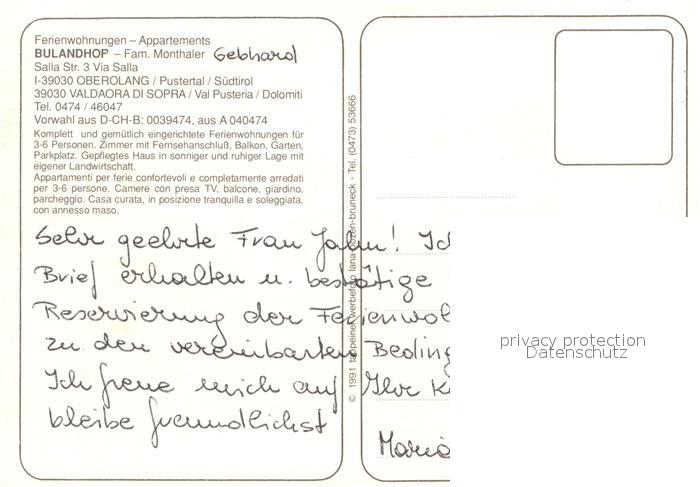 Ferienwohnungen – Appartements
BULANDHOF – Fam. Monthaler Gebhard
Salla Str. 3 Via Salla
I-39030 OBEROLANG / Pustertal / Südtirol
39030 VALDAORA DI SOPRA / Val Pusteria / Dolomiti
Tel. 0474 / 46047
Vorwahl aus D-CH-B: 0039474, aus A 040474
Komplett und gemütlich eingerichtete Ferienwohnungen für
3-6 Personen. Zimmer mit Fernsehanschluß, Balkon, Garten,
Parkplatz. Gepflegtes Haus in sonniger und ruhiger Lage mit
eigener Landwirtschaft.
Appartamenti per ferie confortevoli e completamente arredati
per 3-6 persone. Camere con presa TV, balcone, giardino,
parcheggio. Casa curata, in posizione tranquilla e soleggiata,
con annesso maso.
Sehr geehrte Frau Jahn! Ich
Brief erhalten u. bestätige
Reservierung der Ferienwoh
zu den vereinbarten Beding
Ich freue mich auf Ihr K
bleibe freundlichst
Maria
© 1991 tappeiner werbefoto lana-bozen-bruneck - Tel. (0473) 53666
privacy protection
Datenschutz